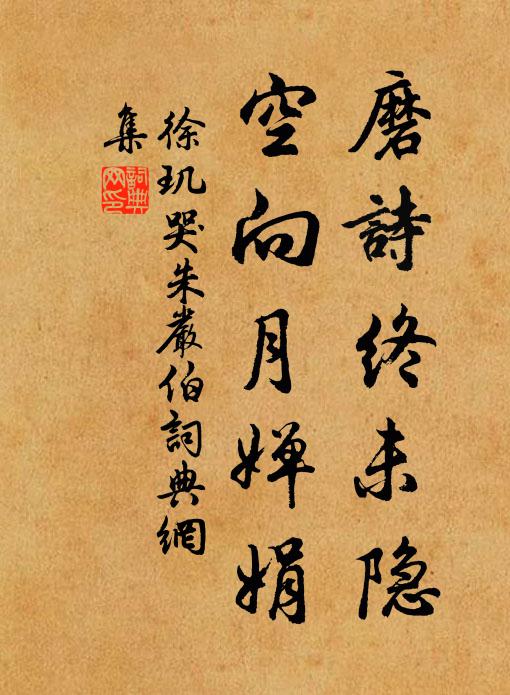 磨詩終未隐
空向月婵娟
徐玑哭朱嚴伯詞典網
集
詞典
网印